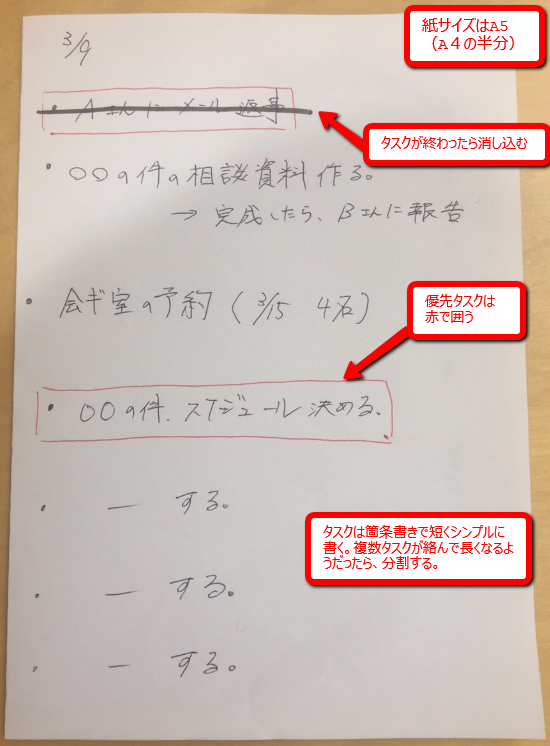 3/9
紙サイズはA5
（A４の半分）
・Aさんにメール返事
タスクが終わったら消し込む
・〇〇の件の相談資料作る。
→ 完成したら、Bさんに報告
・会ギ室の予約（3/15 4名）
優先タスクは
赤で囲う
・〇〇の件、スケジュール決める。
・ー する。
タスクは箇条書きで短くシンプルに
書く。複数タスクが絡んで長くなるよ
うだったら、分割する。
・ー する。
・ー する。